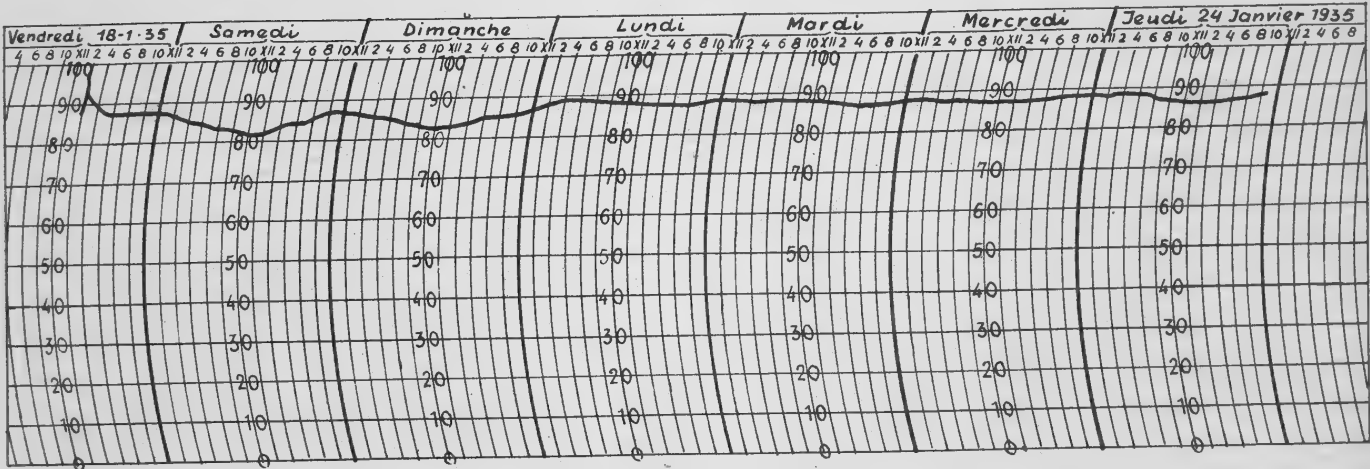 Vendredi 18-1-35 Samedi Dimanche Lundi Mardi Mercredi Jeudi 24 Janvier 1935
4 6 8 10 XII 2 4 6 8 10 XII 2 4 6 8 10 XII 2 4 6 8 10 XII 2 4 6 8 10 XII 2 4 6 8 10 XII 2 4 6 8 10 XII 2 4 6 8 10 XII 2 4 6 8 10 XII 2 4 6 8 10 XII 2 4 6 8 10 XII 2 4 6 8 10 XII 2 4 6 8 10 XII 2 4 6 8 10 XII 2 4 6 8
100 100 100 100 100 100 100
90 90 90 90 90 90 90
80 80 80 80 80 80 80
70 70 70 70 70 70 70
60 60 60 60 60 60 60
50 50 50 50 50 50 50
40 40 40 40 40 40 40
30 30 30 30 30 30 30
20 20 20 20 20 20 20
10 10 10 10 10 10 10
0 0 0 0 0 0 0